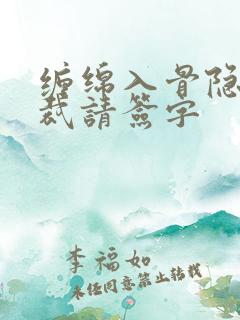 缠绵入骨隐
裁請簽字
李福如
未经同意禁止转载